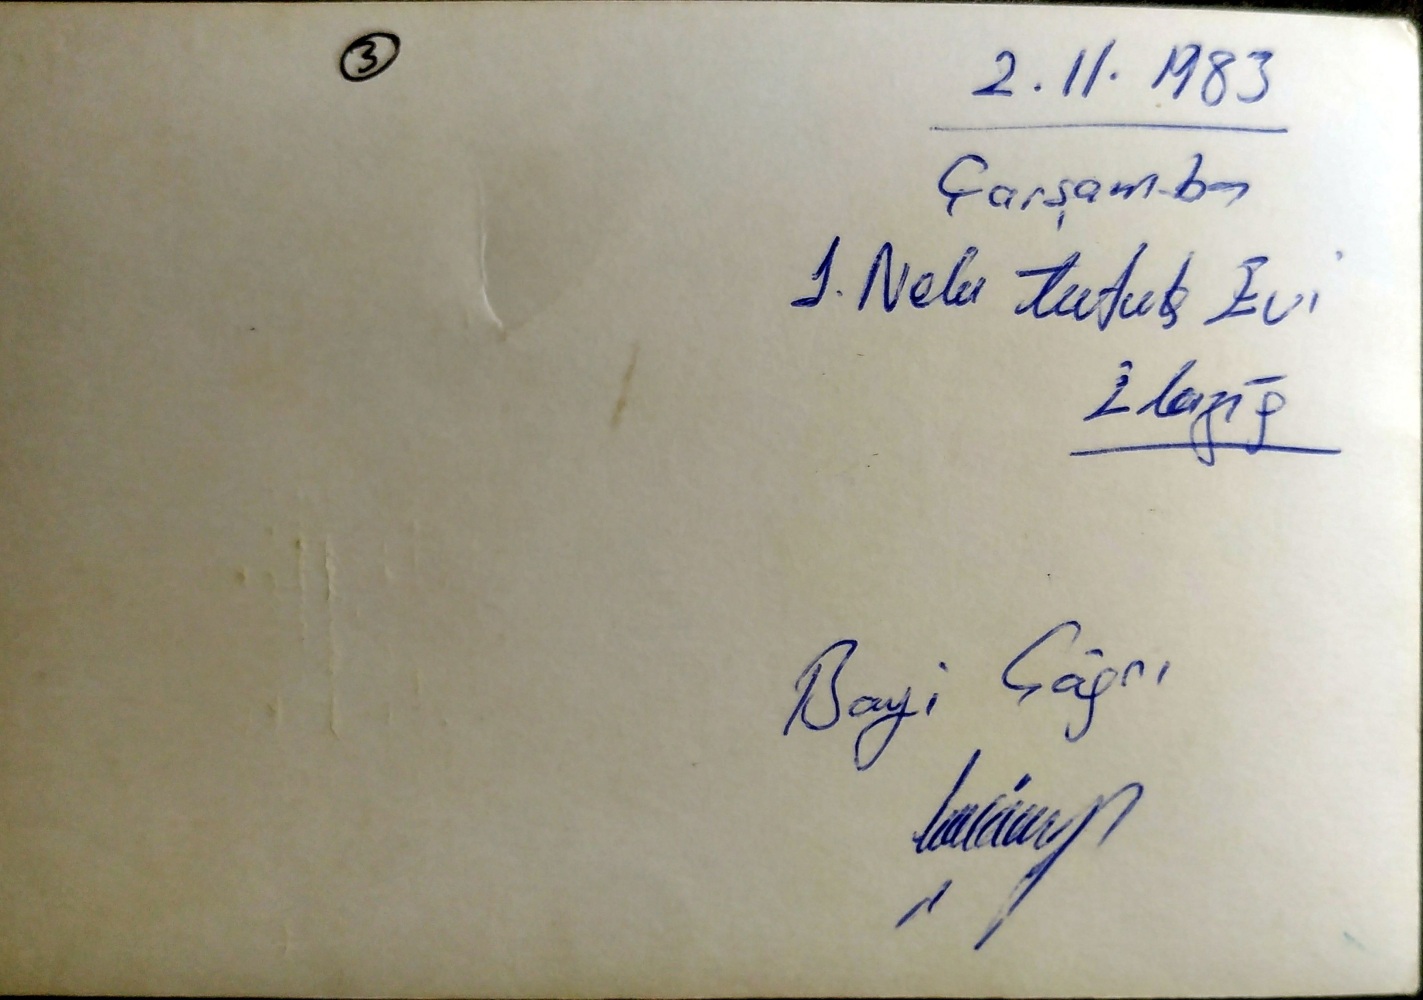 3
2.11.1983
Çarşamba
1. Nolu Tutuk Evi
Elazığ
Bayi Çağrı